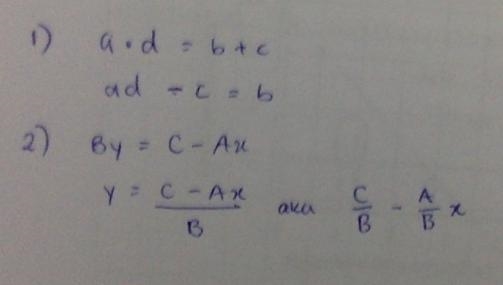 1) a • d = b + c
ad - c = b
2) By = C - Ax
y = \frac{C - Ax}{B} aka \frac{C}{B} - \frac{A}{B} x